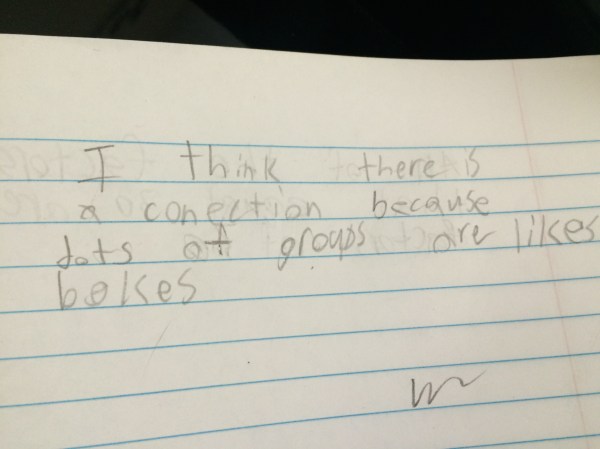 I think there is
a conection because
dots of groups are likes
bokes